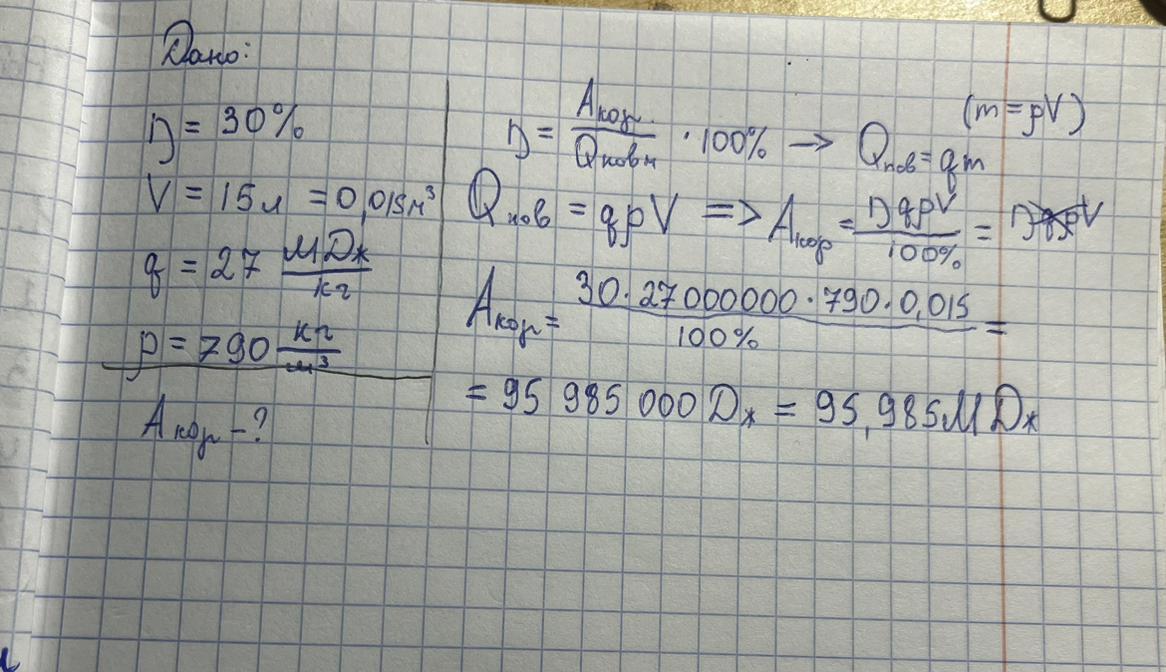 Дано:
η = 30%
V = 15л = 0,015м³
q = 27 МДж/кг
ρ = 790 кг/м³
Aкор - ?
η = Aкор./Qповн · 100% → Qпов = qm (m = ρV)
Qпов = qρV => Aкор = ηqρV/100% =
Aкор = 30·27000000·790·0,015/100% =
= 95 985 000 Дж = 95,985МДж